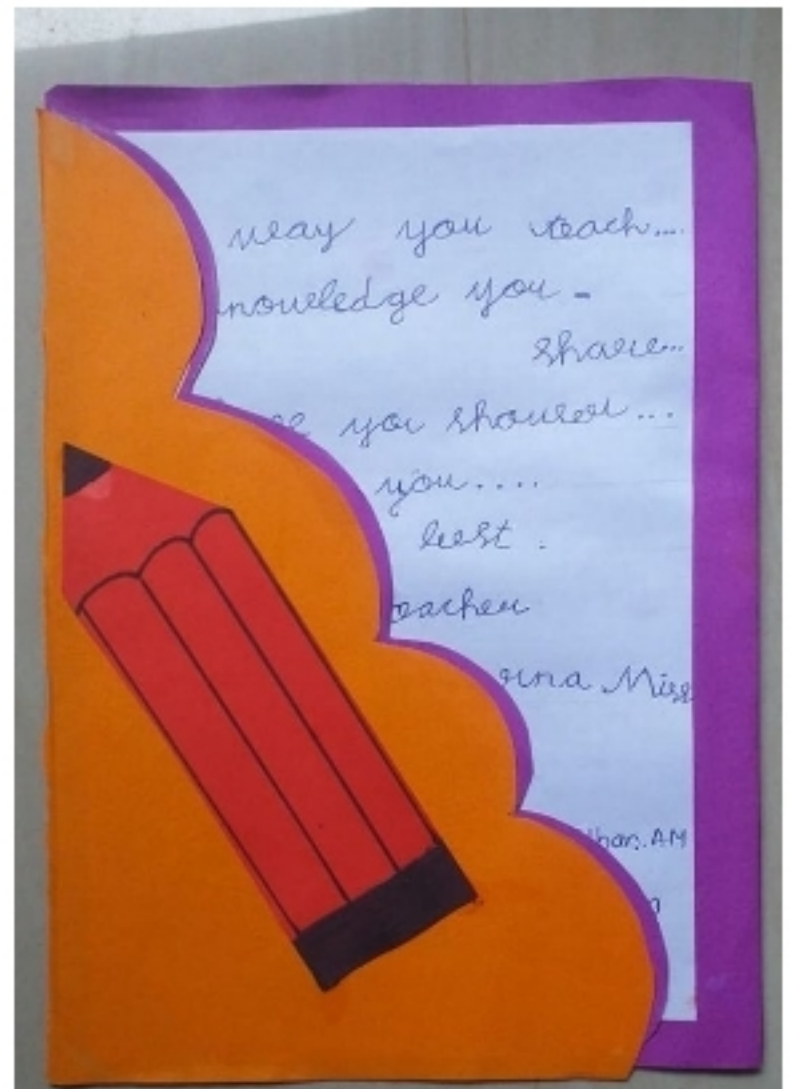 way you teach...
nowledge you -
share...
you shower...
you....
best .
eacher
Miss
AM